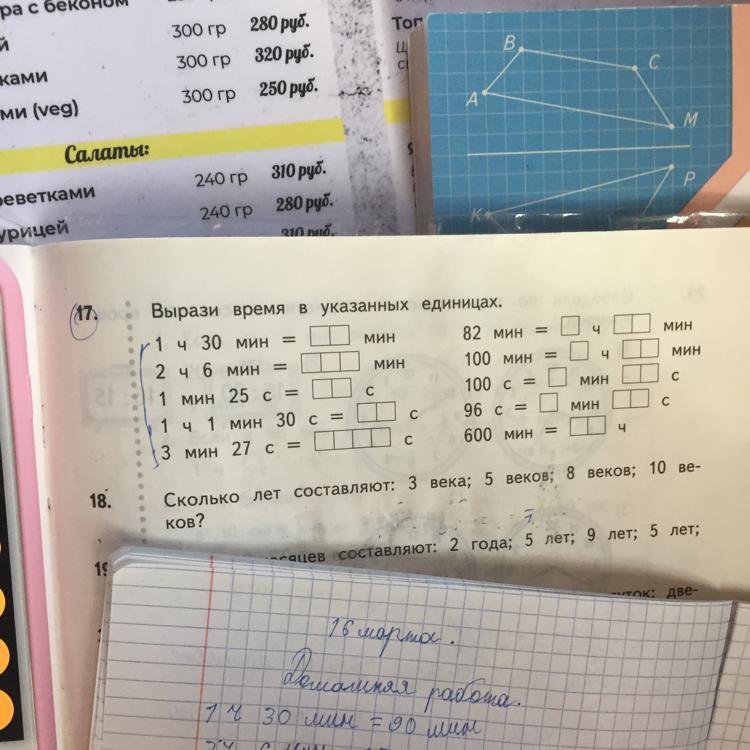 ра с беконом
300 гр 280 руб.
й
300 гр 320 руб.
ками
300 гр 250 руб.
ми (veg)
Салаты:
240 гр 310 руб.
реветками
240 гр 280 руб.
урицей
310 руб.
Топ
B
C
A
M
P
K
17. Вырази время в указанных единицах.
1 ч 30 мин = мин
2 ч 6 мин = мин
1 мин 25 с = с
1 ч 1 мин 30 с = с
3 мин 27 с = с
82 мин = ч мин
100 мин = ч мин
100 с = мин с
96 с = мин с
600 мин = ч
18. Сколько лет составляют: 3 века; 5 веков; 8 веков; 10 ве-
ков?
19 сяцев составляют: 2 года; 5 лет; 9 лет; 5 лет;
уток: две-
16 марта.
Домашняя работа.
1 ч 30 мин = 90 мин